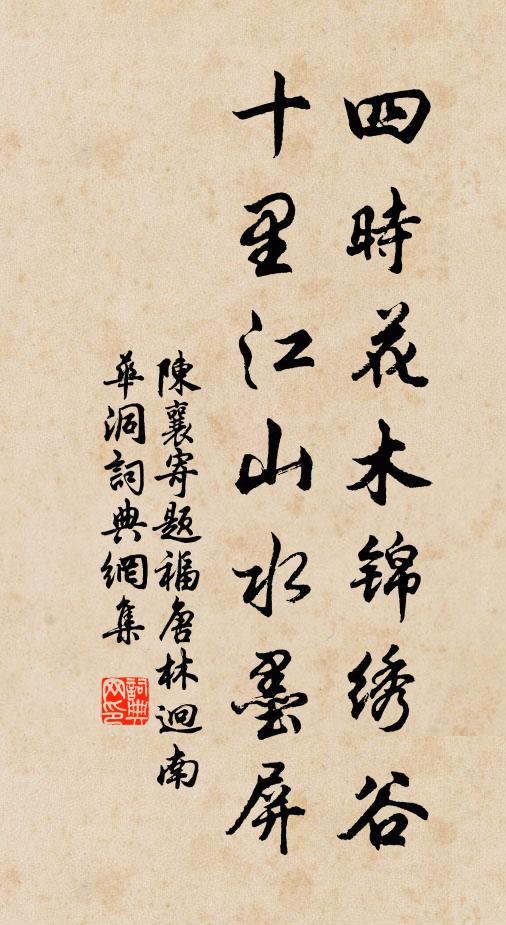 四時花木锦绣谷
十里江山水墨屏
陳襄寄题福唐林迥南
華洞詞典網集
詞典网印